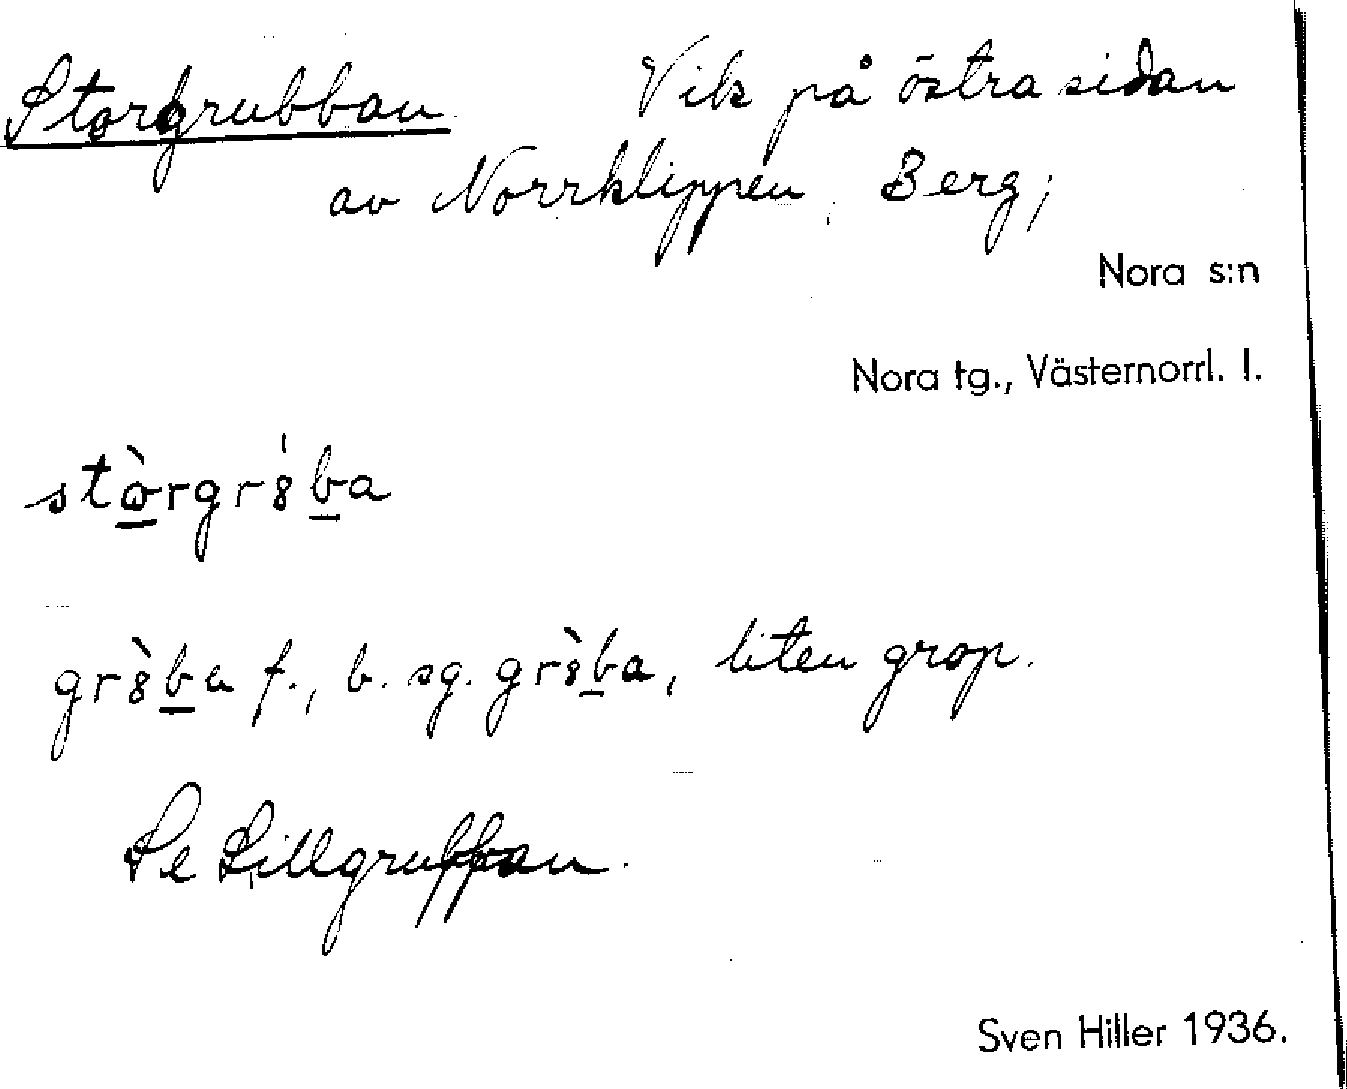 Storgrubban Vik på östra sidan
av Norrklippen, Berg;
Nora s:n
Nora tg., Västernorrl. l.
stò̱rgr8́ḇa
gr8̀ḇa f., b. sg. gr8̀ḇa, liten grop.
Se Lillgrubban.
Sven Hiller 1936.